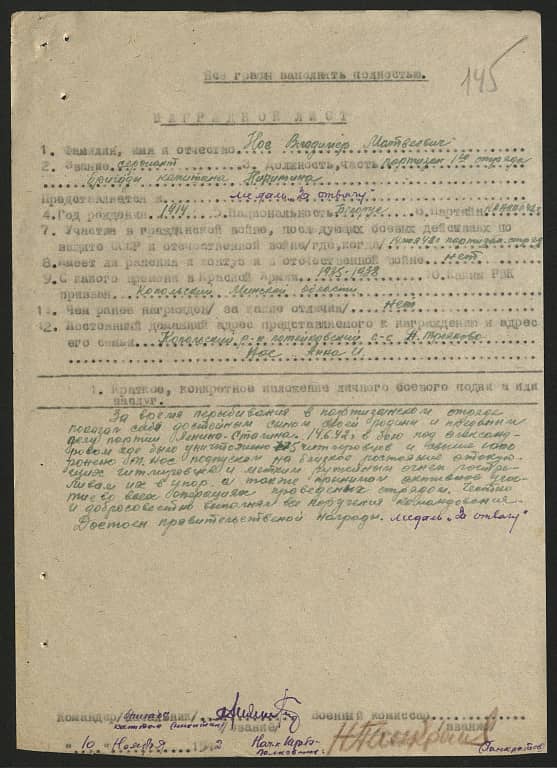 145
Все графы заполнять полностью.
НАГРАДНОЙ ЛИСТ
1. Фамилия, имя и отчество Нос Владимир Матвеевич
2. Звание сержант 3. Должность, часть партизан 1го отряда
бригады капитана Никитина
Представляется к медали "За отвагу"
4. Год рождения 1914 5. Национальность Белорус 6. Партийн
7. Участие в гражданской войне, последующих боевых действиях по
защите СССР и отечественной войне/где, когда/ партизан. отряд
8. Имеет ли ранения и контузии в отечественной войне нет
9. С какого времени в Красной Армии 1935-1938 10. Каким РВК
призван Копыльский Минской области
11. Чем ранее награжден/за какие отличия/ Нет
12. Постоянный домашний адрес представляемого к награждению и адрес
его семьи Копыльский р-н с-с
Нос Анна И.
1. Краткое, конкретное изложение личного боевого подвига или
заслуг.
За время перебывания в партизанском отряде
показал себя достойным сыном своей родины и преданным
делу партии Ленина-Сталина. 14.6.42 г. в бою под Александ-
ровом где было уничтожено гитлеровцев и
Нос подпускал на близкое растояние атакую-
щих гитлеровцев и метким ружейным огнем расстре-
ливал их в упор. а также принимал активное учас-
тие во всех операциях проведеных отрядом, честно
и добросовестно выполнял все поручения командования.
Достоин правительственной награды. медаль "За отвагу"
Командир/ Военный комиссар
/звание/ /звание/
"10" Ноября 1942
Нач. Штаба
Полковник
Панкратов